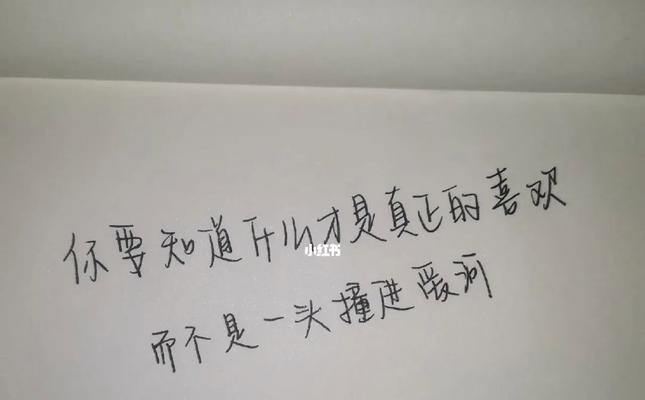 你要知道什么才是真正的喜欢
小红书
而不是一头撞进爱河